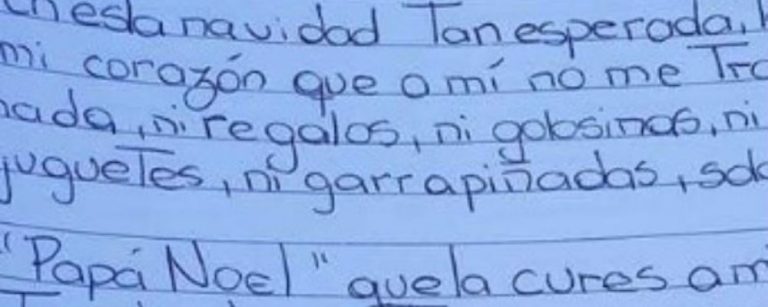 en esta navidad Tan esperada,
mi corazón que a mí no me
nada, ni regalos, ni golosinas, ni
juguetes, ni garrapiñadas, solo
"Papá Noel" que la cures a mi